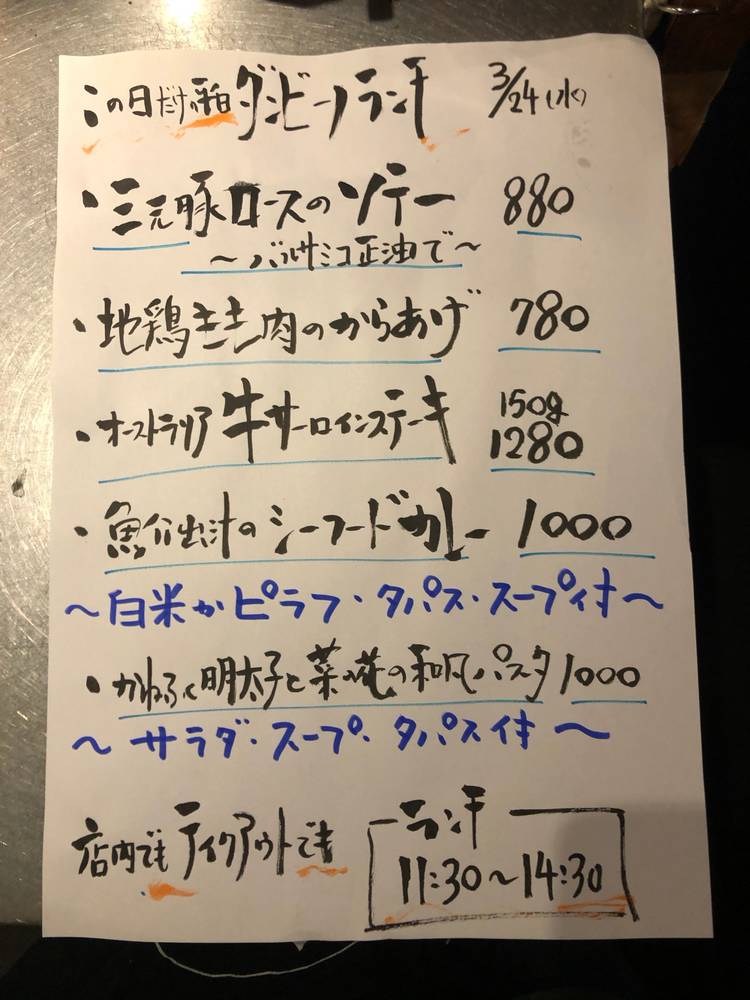 この日だけの平日ダンビーノランチ 3/24(水)
・三元豚ロースのソテー 880
～バルサミコ正油で～
・地鶏もも肉のからあげ 780
・オーストラリア牛サーロインステーキ 150g 1280
・魚介出汁のシーフードカレー 1000
～白米かピラフ・タパス・スープ付～
・かねふく明太子と菜の花の和風パスタ 1000
～サラダ・スープ・タパス付～
店内でもテイクアウトでも
ランチ
11:30～14:30